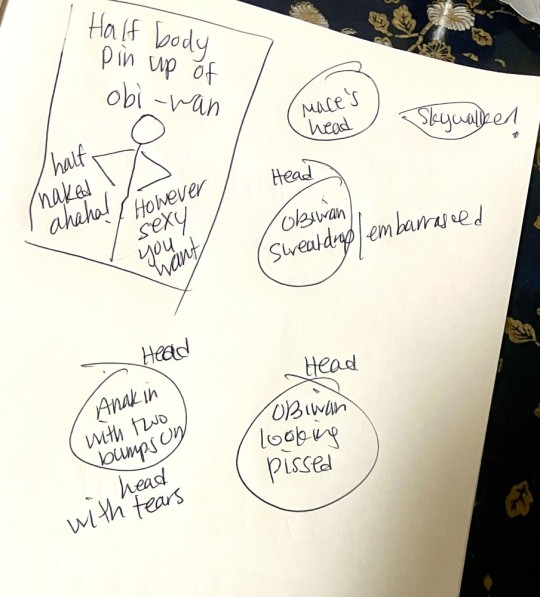 Half body
pin up of
obi-wan
half
naked
ahaha!
However
sexy
you
want
Mace's
head
Skywalker.
Head
Obiwan
sweatdrop/embarrassed
Head
Anakin
with two
bumps on
head
with tears
Head
OBiwan
looking
pissed